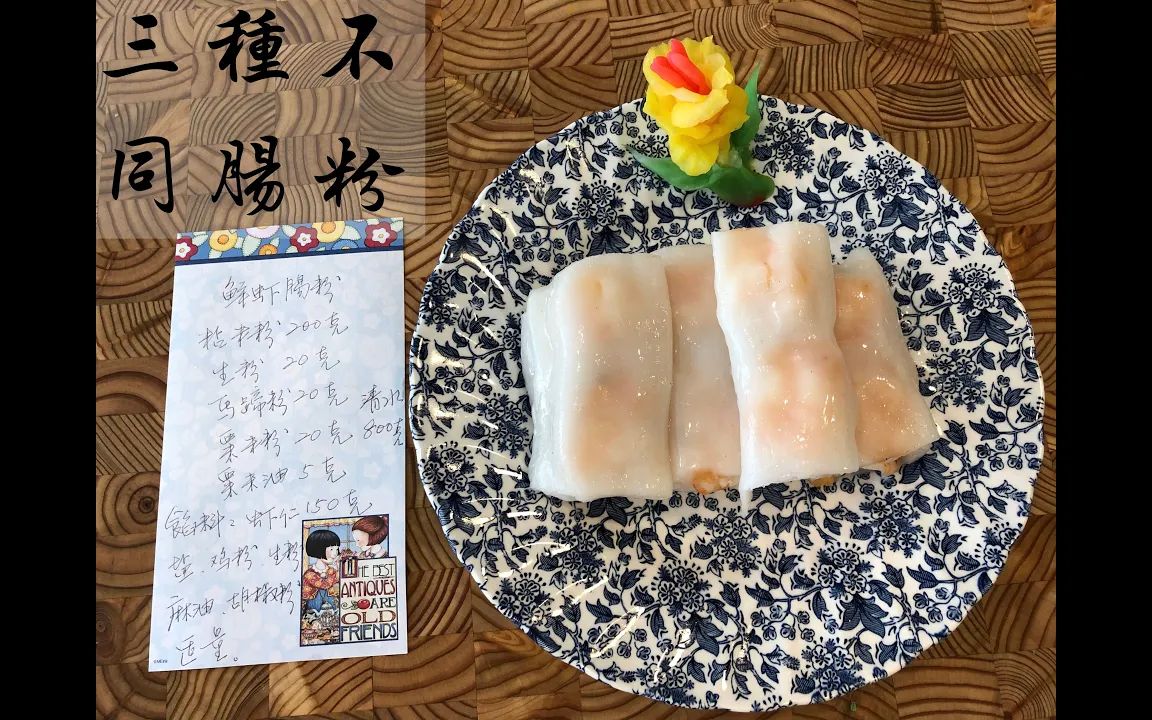 三種不
同腸粉
鲜虾腸粉
粘米粉 200克
生粉 20克
马蹄粉 20克 清水
粟米粉 20克 800克
粟米油 5克
餡料: 虾仁 150克
盐、鸡粉、生粉
麻油 胡椒粉
适量。
THE BEST
ANTIQUES
ARE
OLD
FRIENDS